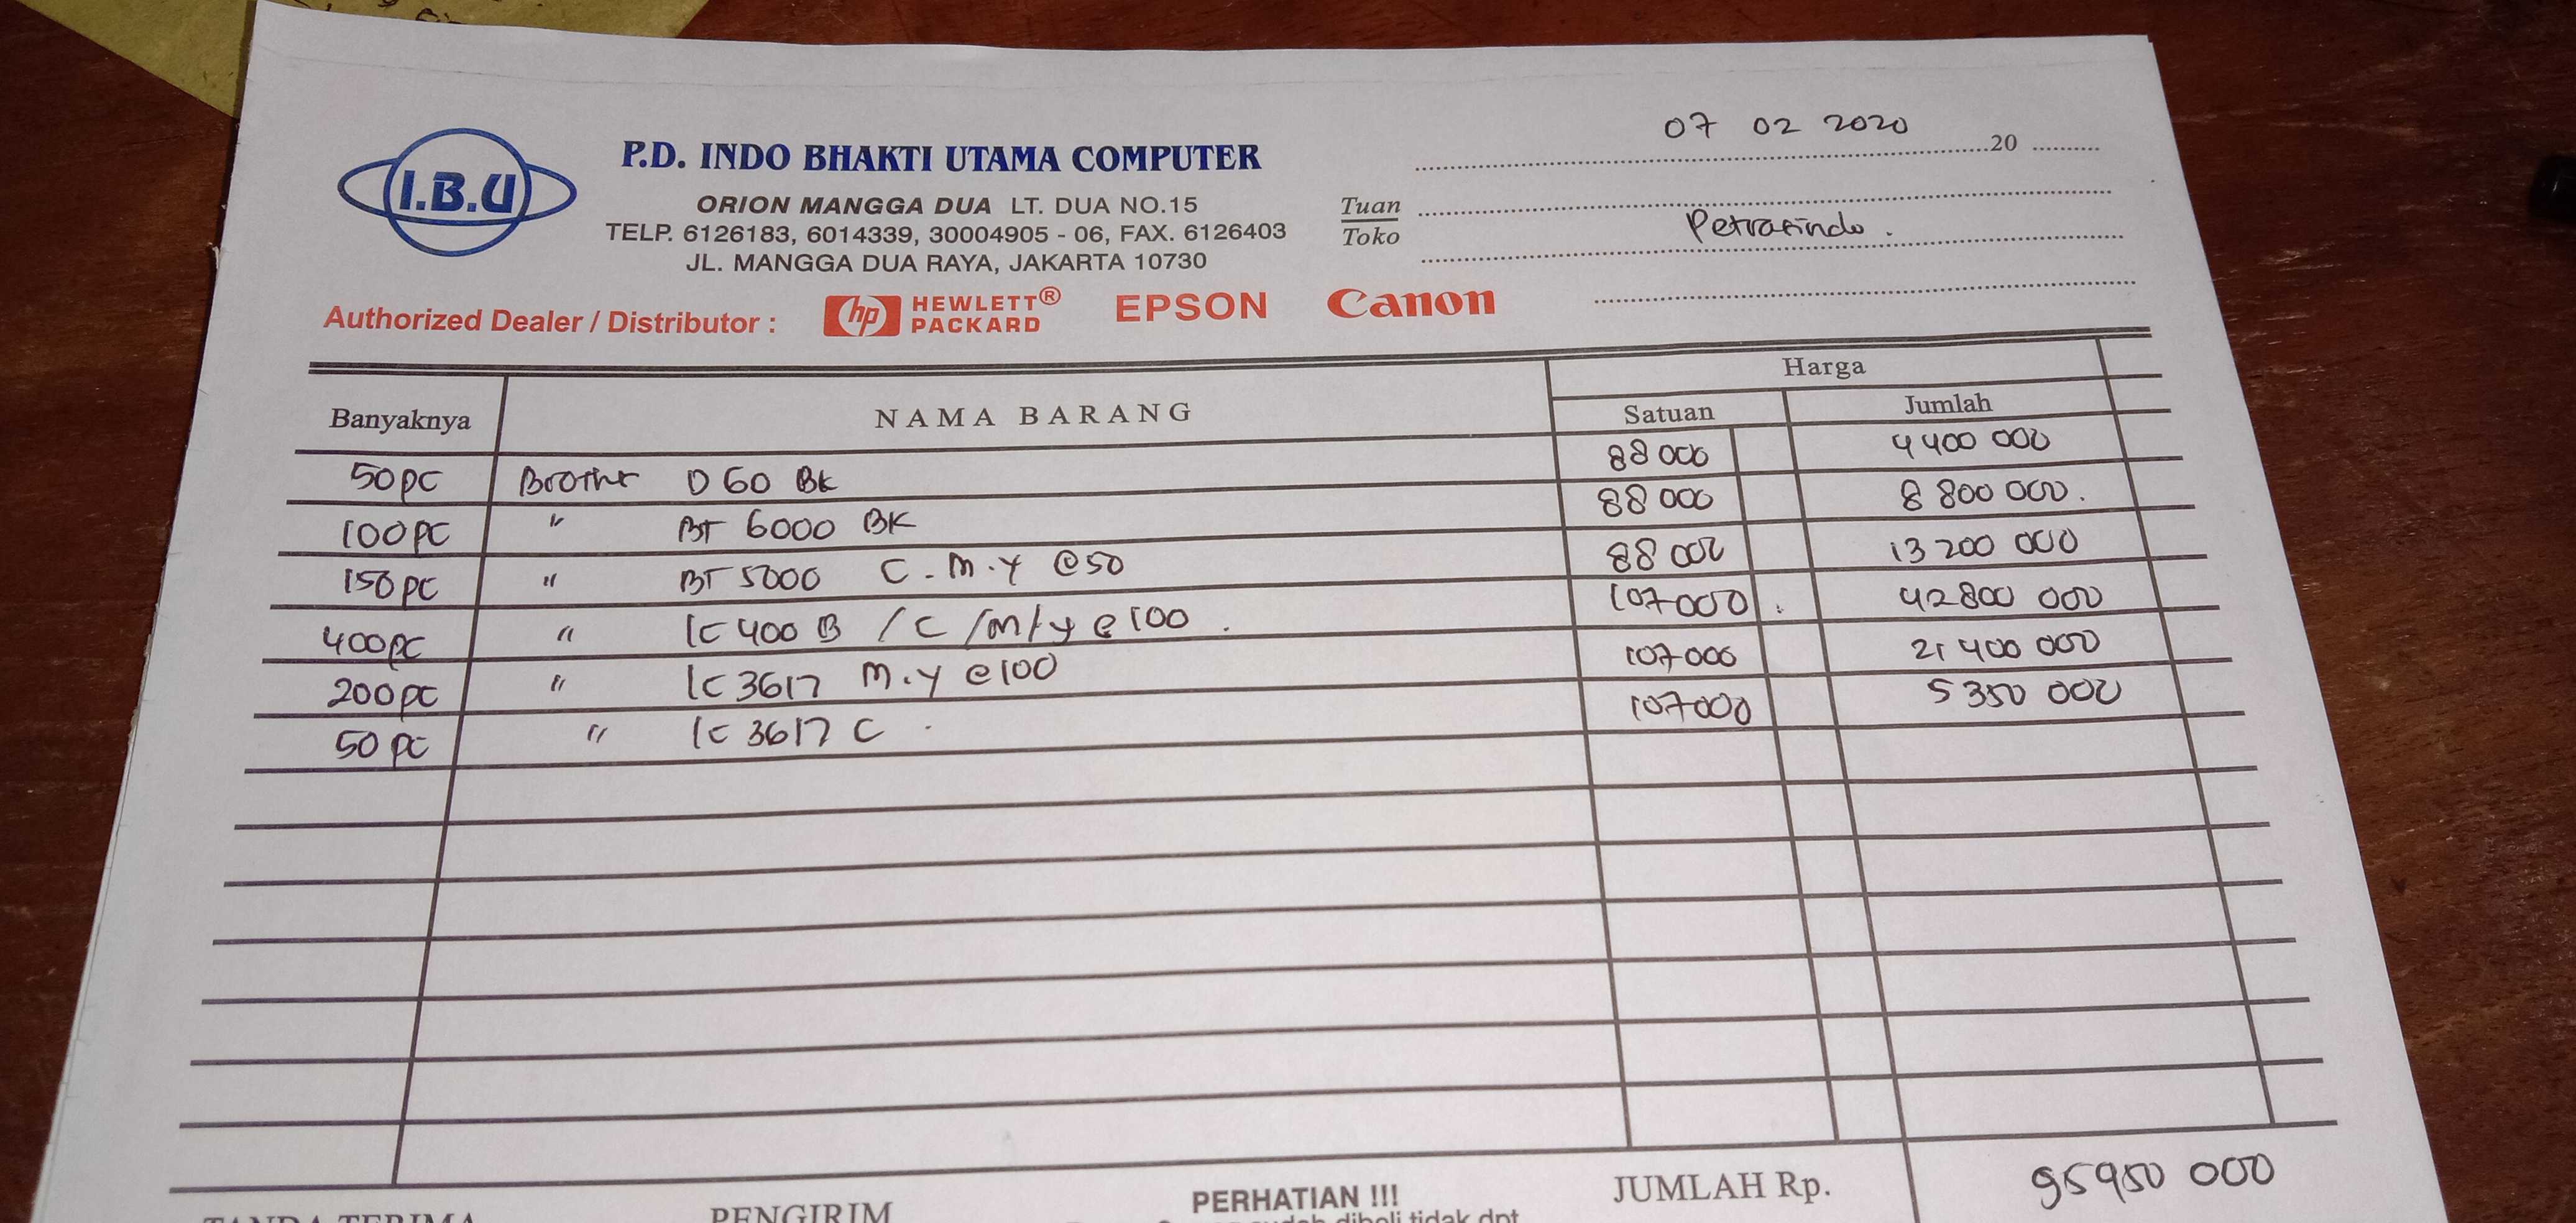 07 02 2020
20
I.B.U
P.D. INDO BHAKTI UTAMA COMPUTER
ORION MANGGA DUA LT. DUA NO.15
TELP. 6126183, 6014339, 30004905 - 06, FAX. 6126403
JL. MANGGA DUA RAYA, JAKARTA 10730
Tuan
Toko Petrasindo.
Authorized Dealer / Distributor : hp HEWLETT® PACKARD EPSON Canon
Harga
Banyaknya NAMA BARANG Satuan Jumlah
50 pc Brother D 60 BK 88 000 4 400 000
100 pc " BT 6000 BK 88 000 8 800 000.
150 pc " BT 5000 C - M . Y @50 88 000 13 200 000
400 pc " lc 400 B / C / M / Y @ 100 . 107 000 42 800 000
200 pc " lc 3617 M . Y @ 100 107 000 21 400 000
50 pc " lc 3617 C 107 000 5 350 000
JUMLAH Rp. 95 950 000
TANDA TERIMA PENGIRIM PERHATIAN !!!
sudah dibeli tidak dpt